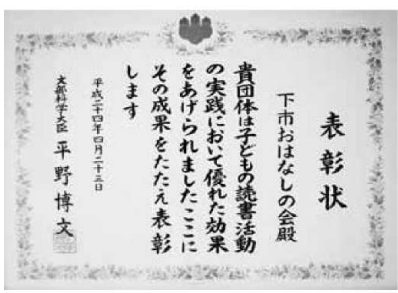 表彰状
下市おはなしの会殿
貴団体は子どもの読書活動
の実践において優れた効果
をあげられましたここに
その成果をたたえ表彰
します
平成二十四年四月二十三日
文部科学大臣 平野博文